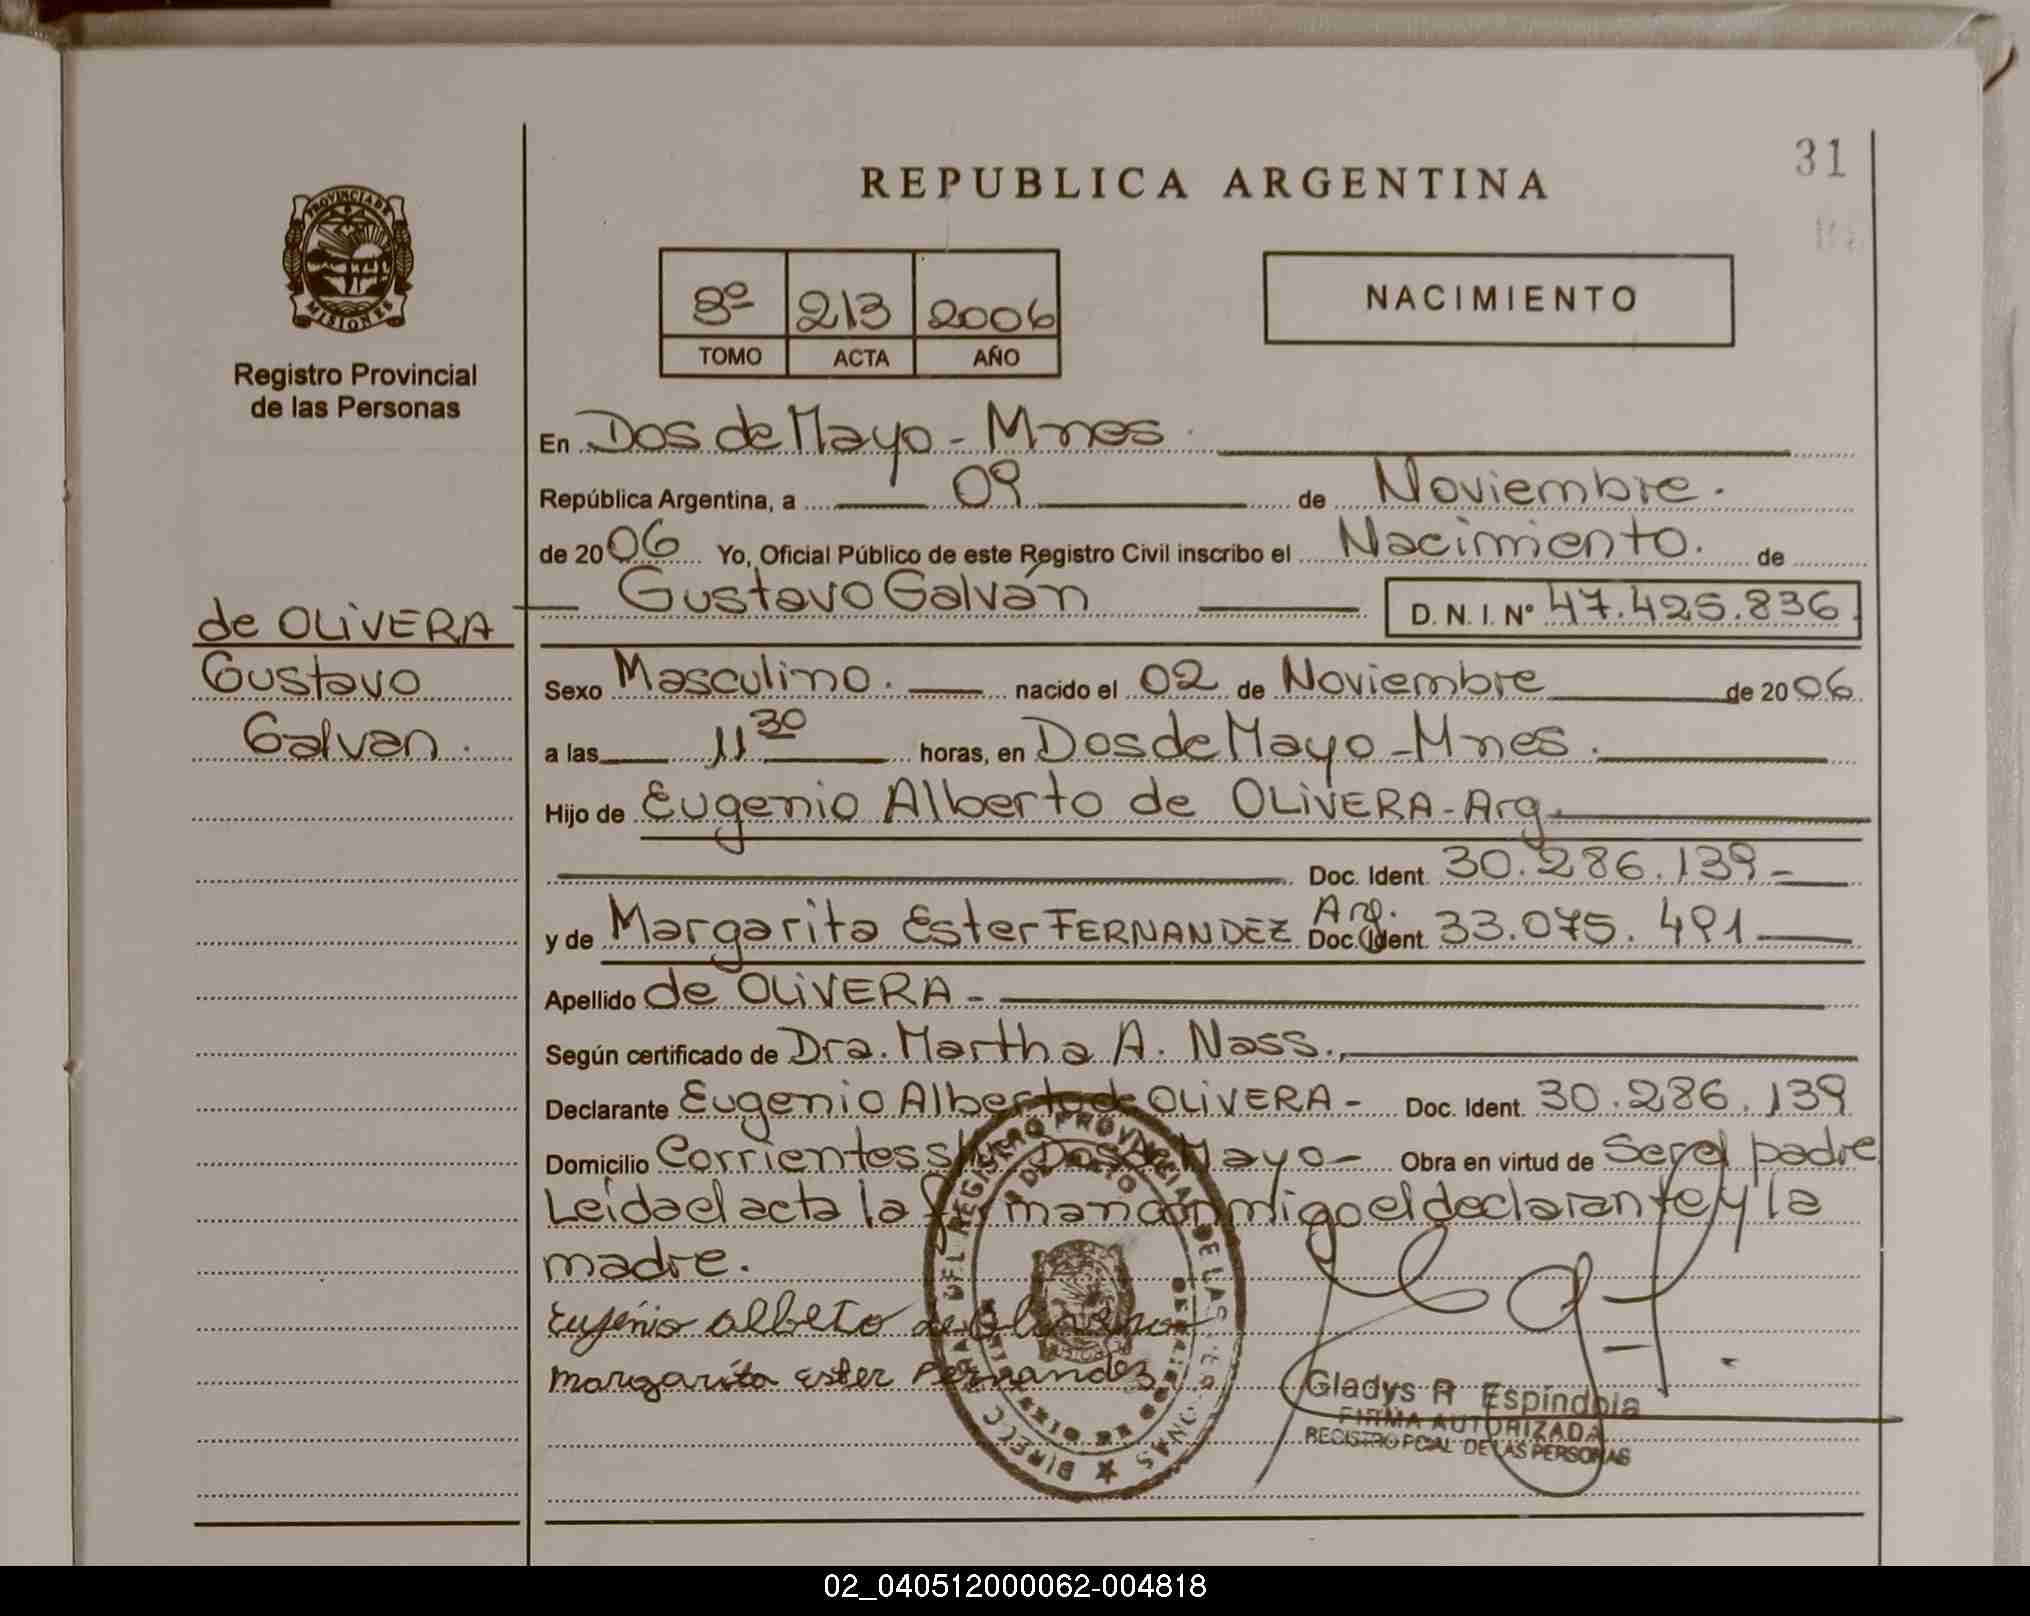 31
REPUBLICA ARGENTINA
PROVINCIA DE
MISIONES
Registro Provincial
de las Personas
8º 213 2006
TOMO ACTA AÑO
NACIMIENTO
En Dos de Mayo - Mnes.
República Argentina, a 09 de Noviembre.
de 2006 Yo, Oficial Público de este Registro Civil inscribo el Nacimiento. de
Gustavo Galván D.N.I. Nº 47.425.836
de OLIVERA
Gustavo
Galvan.
Sexo Masculino. nacido el 02 de Noviembre de 2006
a las 11 30 horas, en Dos de Mayo - Mnes.
Hijo de Eugenio Alberto de OLIVERA - Arg.
Doc. Ident. 30.286.139 -
y de Margarita Ester FERNANDEZ Arg. Doc. Ident. 33.075.491
Apellido de OLIVERA -
Según certificado de Dra. Martha A. Nass.
Declarante Eugenio Alberto de OLIVERA - Doc. Ident. 30.286.139
Domicilio Corrientes s/ Dos de Mayo - Obra en virtud de Ser el padre
Leída el acta la firman conmigo el declarante y la
madre.
Eujenio Alberto de Olivera
Margarita Ester Fernandez
Gladys R Espíndola
FIRMA AUTORIZADA
REGISTRO PCIAL DE LAS PERSONAS
02_040512000062-004818